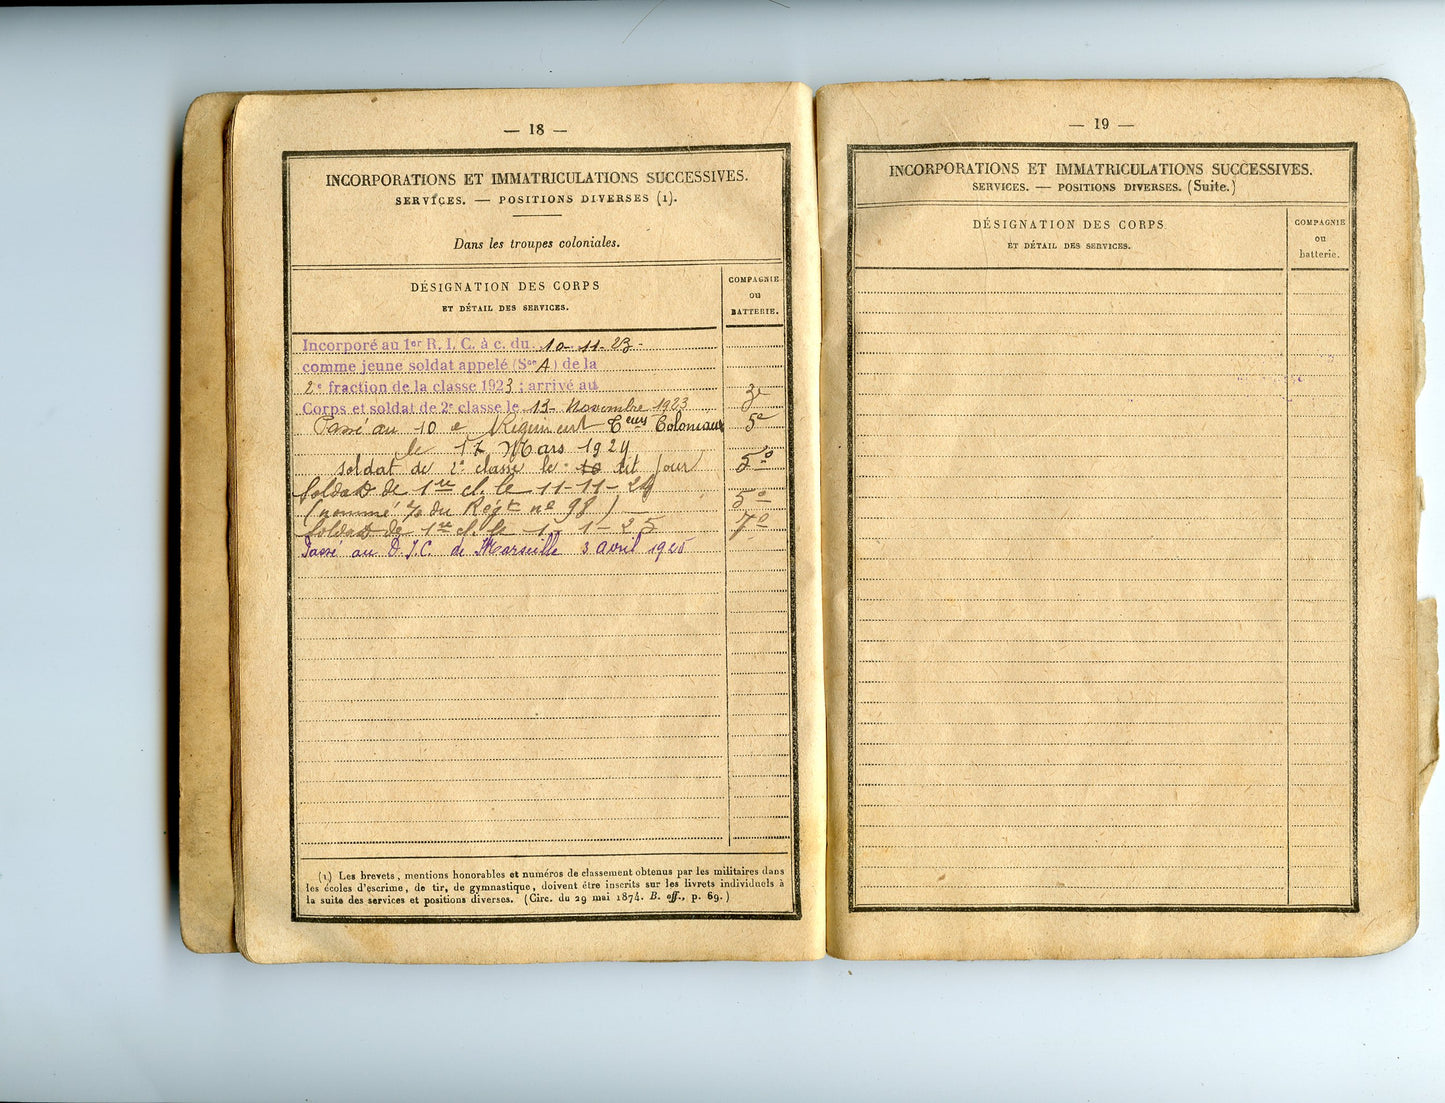 — 18 —
INCORPORATIONS ET IMMATRICULATIONS SUCCESSIVES.
SERVICES. — POSITIONS DIVERSES (1).
Dans les troupes coloniales.
DÉSIGNATION DES CORPS
ET DÉTAIL DES SERVICES.
COMPAGNIE
OU
BATTERIE.
Incorporé au 1er R. I. C. à c. du 10-11-23-
comme jeune soldat appelé (Son A) de la
2e fraction de la classe 1923 ; arrivé au
Corps et soldat de 2e classe le 13 Novembre 1923 3e
Passé au 10e Régiment Coloniaux 5e
le 17 Mars 1924
soldat de 2e classe le dit jour 5e
Soldat de 1re cl. le 11-11-24
(nommé % du Régt no 98) — 5e
Soldat de 1re cl. le 1-1-25 7e
Passé au D.I.C. de Marseille 3 avril 1925
(1) Les brevets, mentions honorables et numéros de classement obtenus par les militaires dans
les écoles d'escrime, de tir, de gymnastique, doivent être inscrits sur les livrets individuels à
la suite des services et positions diverses. (Circ. du 29 mai 1874. B. off., p. 69.)
— 19 —
INCORPORATIONS ET IMMATRICULATIONS SUCCESSIVES.
SERVICES. — POSITIONS DIVERSES. (Suite.)
DÉSIGNATION DES CORPS
ET DÉTAIL DES SERVICES.
COMPAGNIE
ou
batterie.